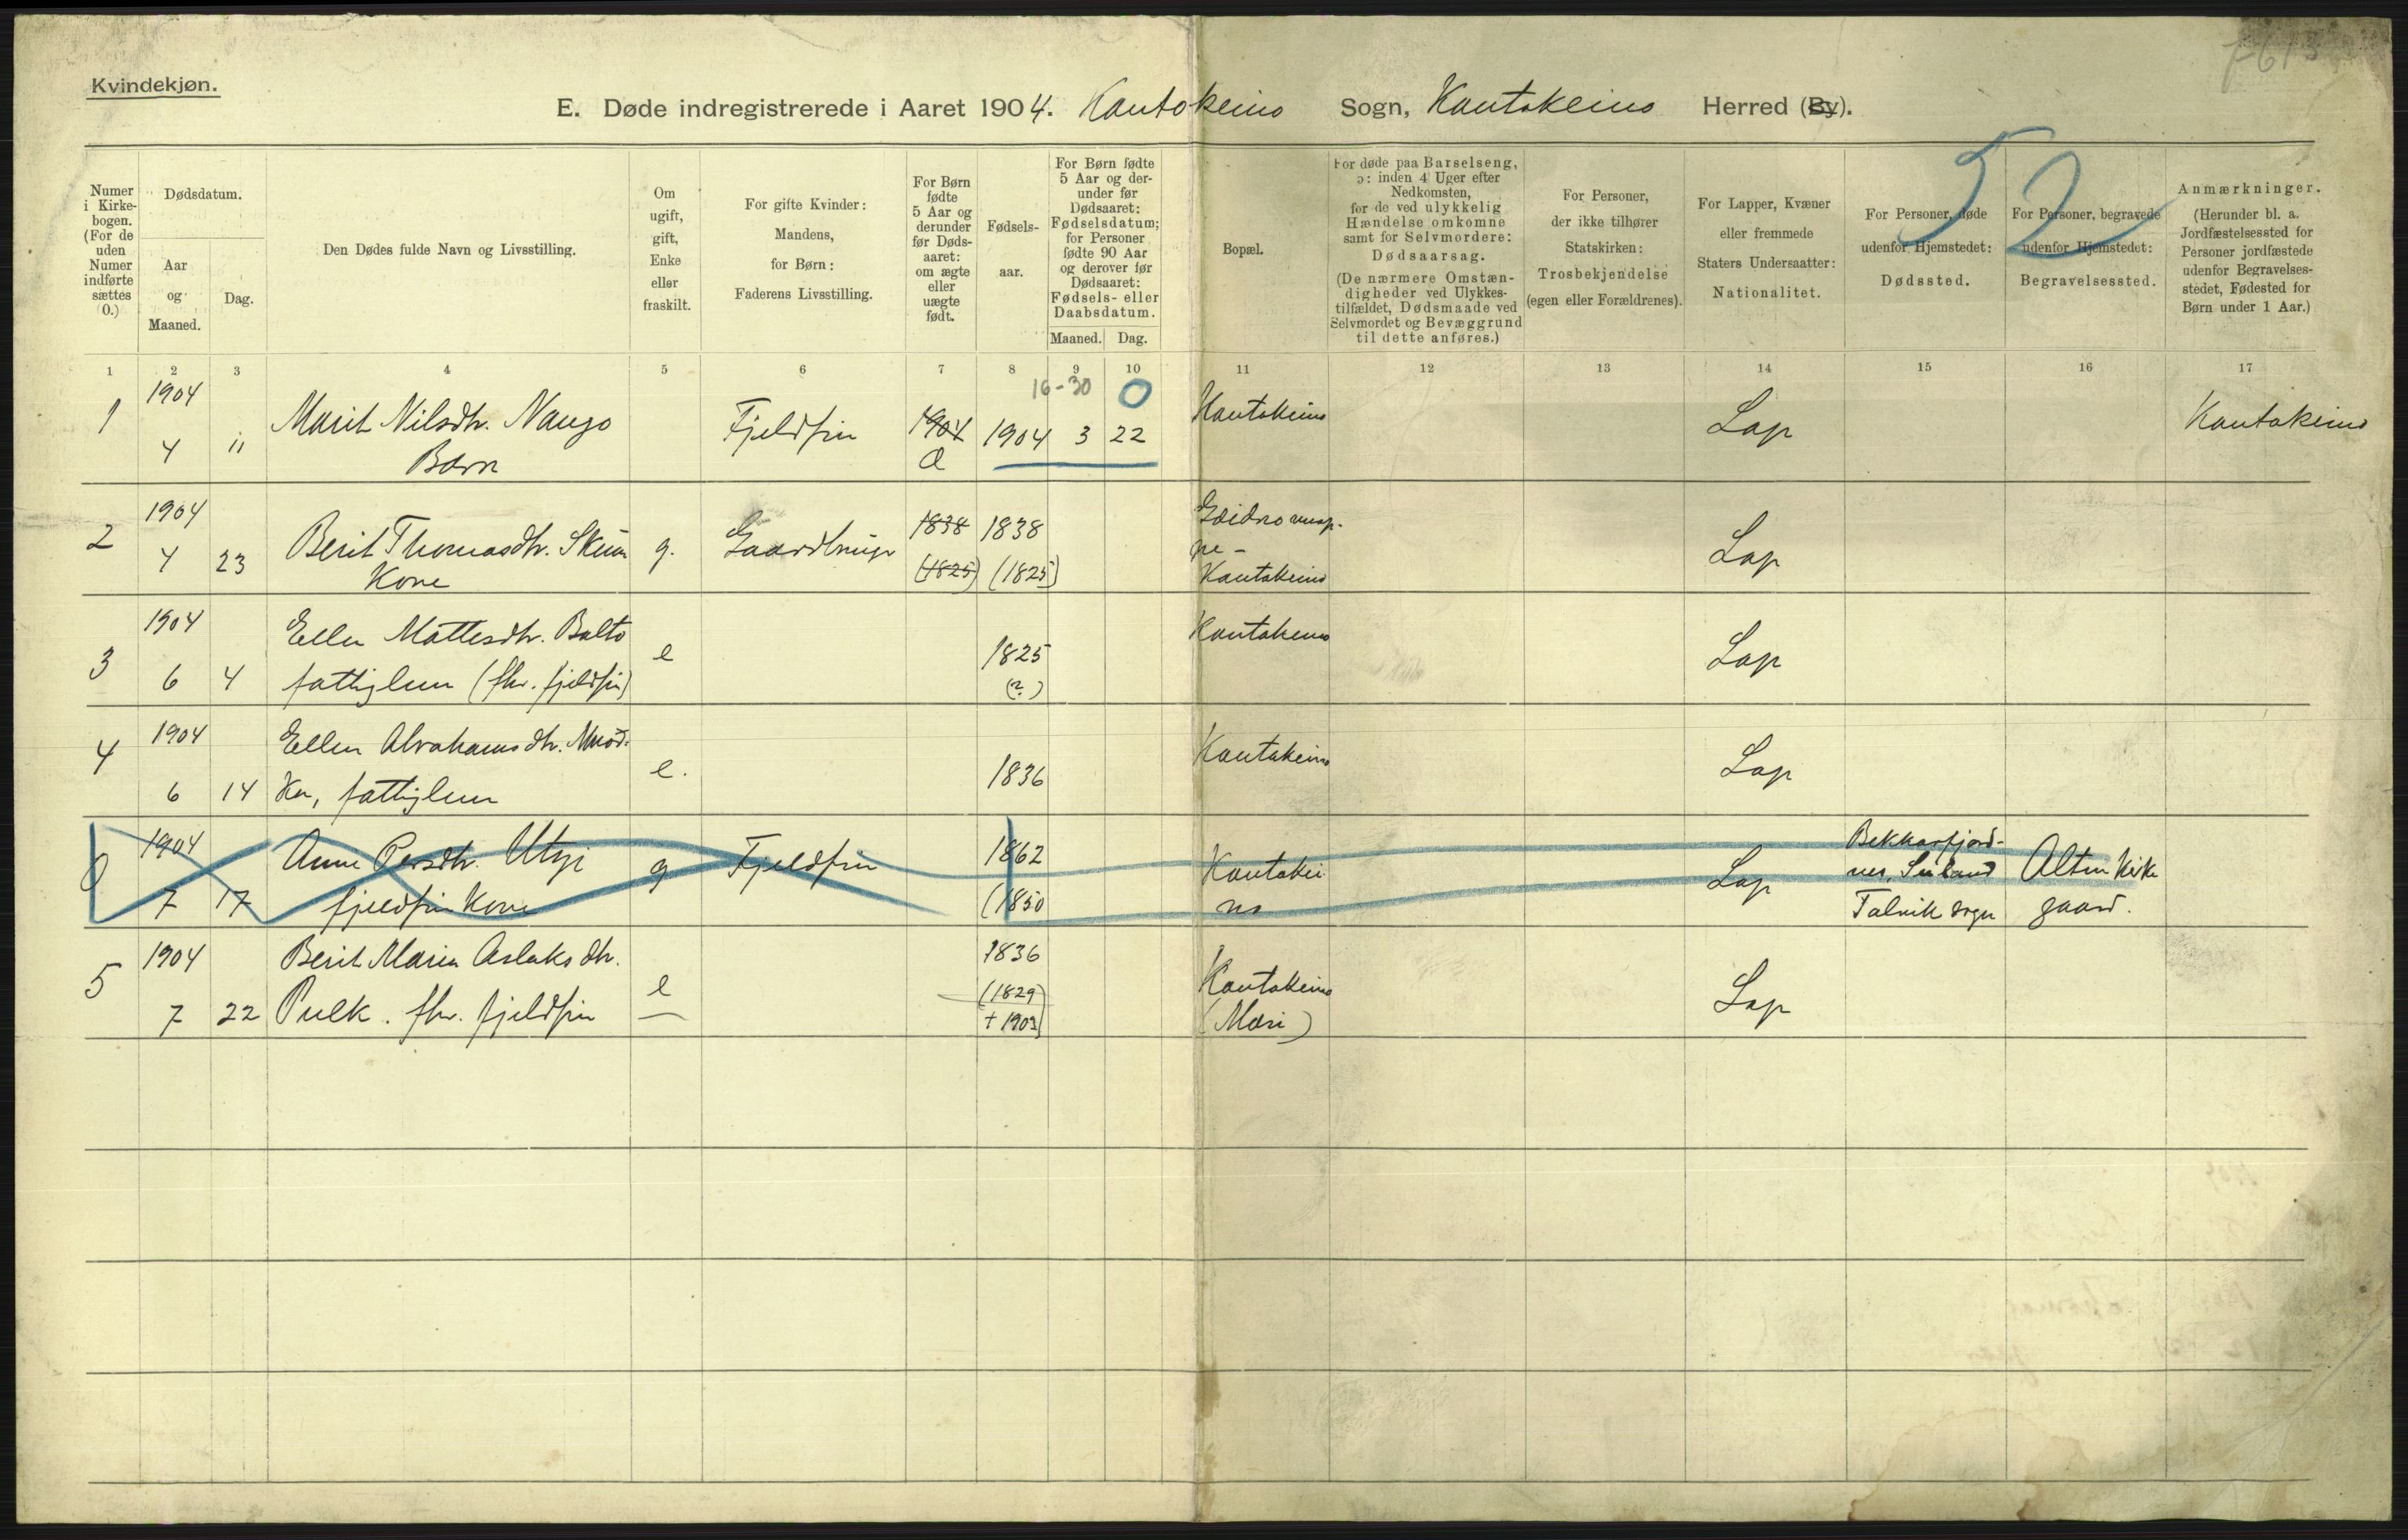 7613
Kvindekjøn.
E. Døde indregistrerede i Aaret 1904. Kautokeino Sogn, Kautokeino Herred (By).
52
Numer
i Kirke-
bogen.
(For de
uden
Numer
indførte
sættes
0.)
Dødsdatum.
Aar
og
Maaned.
Dag.
Den Dødes fulde Navn og Livsstilling.
Om
ugift,
gift,
Enke
eller
fraskilt.
For gifte Kvinder:
Mandens,
for Børn:
Faderens Livsstilling.
For Børn
fødte
5 Aar og
derunder
før Døds-
aaret:
om ægte
eller
uægte
født.
Fødsels-
aar.
For Børn fødte
5 Aar og der-
under før
Dødsaaret:
Fødselsdatum;
for Personer
fødte 90 Aar
og derover før
Dødsaaret:
Fødsels- eller
Daabsdatum.
Maaned. Dag.
Bopæl.
For døde paa Barselseng,
ɔ: inden 4 Uger efter
Nedkomsten,
for de ved ulykkelig
Hændelse omkomne
samt for Selvmordere:
Dødsaarsag.
(De nærmere Omstæn-
digheder ved Ulykkes-
tilfældet, Dødsmaade ved
Selvmordet og Bevæggrund
til dette anføres.)
For Personer,
der ikke tilhører
Statskirken:
Trosbekjendelse
(egen eller Forældrenes).
For Lapper, Kvæner
eller fremmede
Staters Undersaatter:
Nationalitet.
For Personer, døde
udenfor Hjemstedet:
Dødssted.
For Personer, begravede
udenfor Hjemstedet:
Begravelsessted.
Anmærkninger.
(Herunder bl. a.
Jordfæstelsessted for
Personer jordfæstede
udenfor Begravelses-
stedet, Fødested for
Børn under 1 Aar.)
1 2 3 4 5 6 7 8 9 10 11 12 13 14 15 16 17
16-30 0
1 1904 Marit Nilsdtr. Nango Fjeldfin 1904 1904 3 22 Kautokeino Lap Kautokeino
4 11 Barn Æ
2 1904 Berit Thomasdtr. Skum g. Gaardbruger 1838 1838 Goidno
4 23 Kone (1825) (1825) Kautokeino Lap
3 1904 Ellen Mattesdtr. Balto e 1825 Kautokeino Lap
6 4 fattiglem (fhv. fjeldfin) (?)
4 1904 Ellen Abrahamsdtr. e. 1836 Kautokeino Lap
6 14 fattiglem
0 1904 Anne Persdtr. Utsi g Fjeldfin 1862 Kautokei Lap Bekkarfjord-
7 17 fjeldfin Kone (1850 no nes, Seiland Alten Kirke
Talvik sogn gaard.
5 1904 Berit Maria Aslaksdtr. 1836
7 22 Pulk. fhv. fjeldfin e (1829 Kautokeino Lap
+ 1903) (Mæsi)